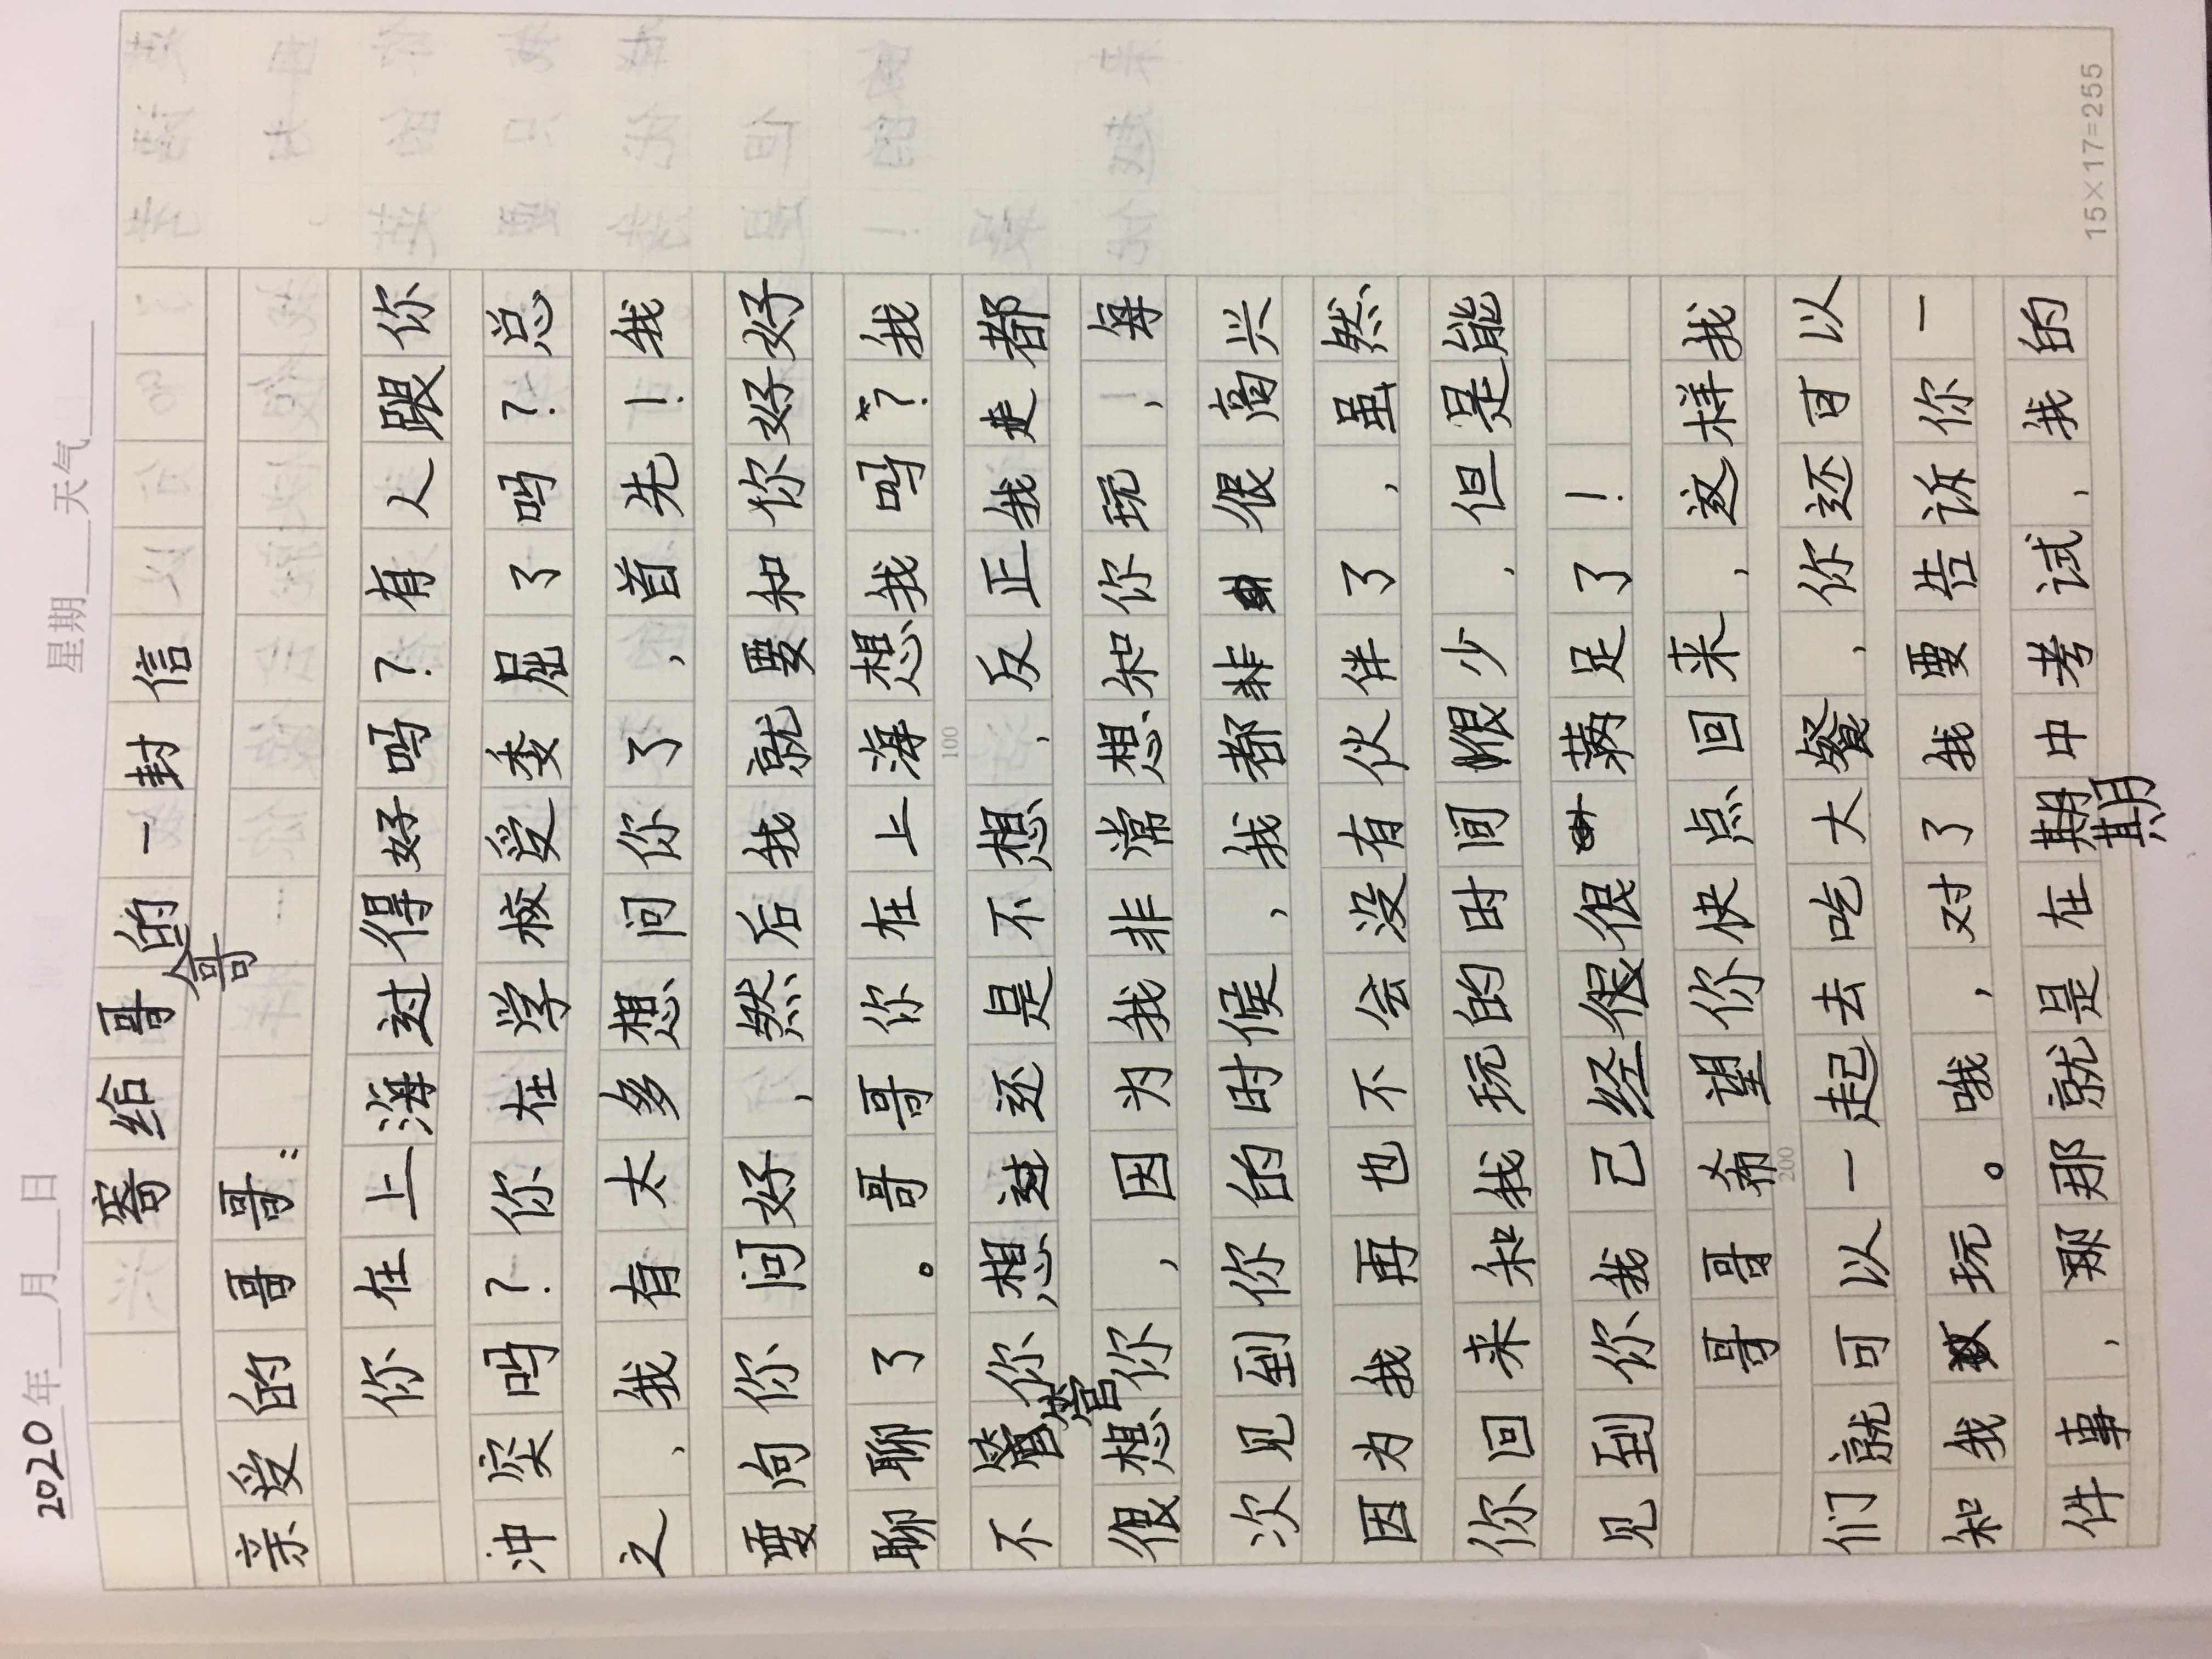 2020年 月 日 星期 天气
寄给哥哥的一封信
亲爱的哥哥:
你在上海过得好吗?有人跟你
冲突吗?你在学校受委屈了吗?总
之,我有太多想问你了,首先!我
要向你问好,然后我就要和你好好
聊聊了。哥哥你在上海想我吗?我
不管你想还是不想,反正我是都
很想你,因为我非常想和你玩,每
次见到你的时候,我都非很高兴
因为我再也不会没有伙伴了,虽然
你回来和我玩的时间很少,但是能
见到你我已经很很满足了!
哥哥希望你快点回来,这样我
们就可以一起去吃大餐,你还可以
和我玩。哦,对了我要告诉你一
件事,那那就是在期中考试,我的
期
15×17=255
100
200